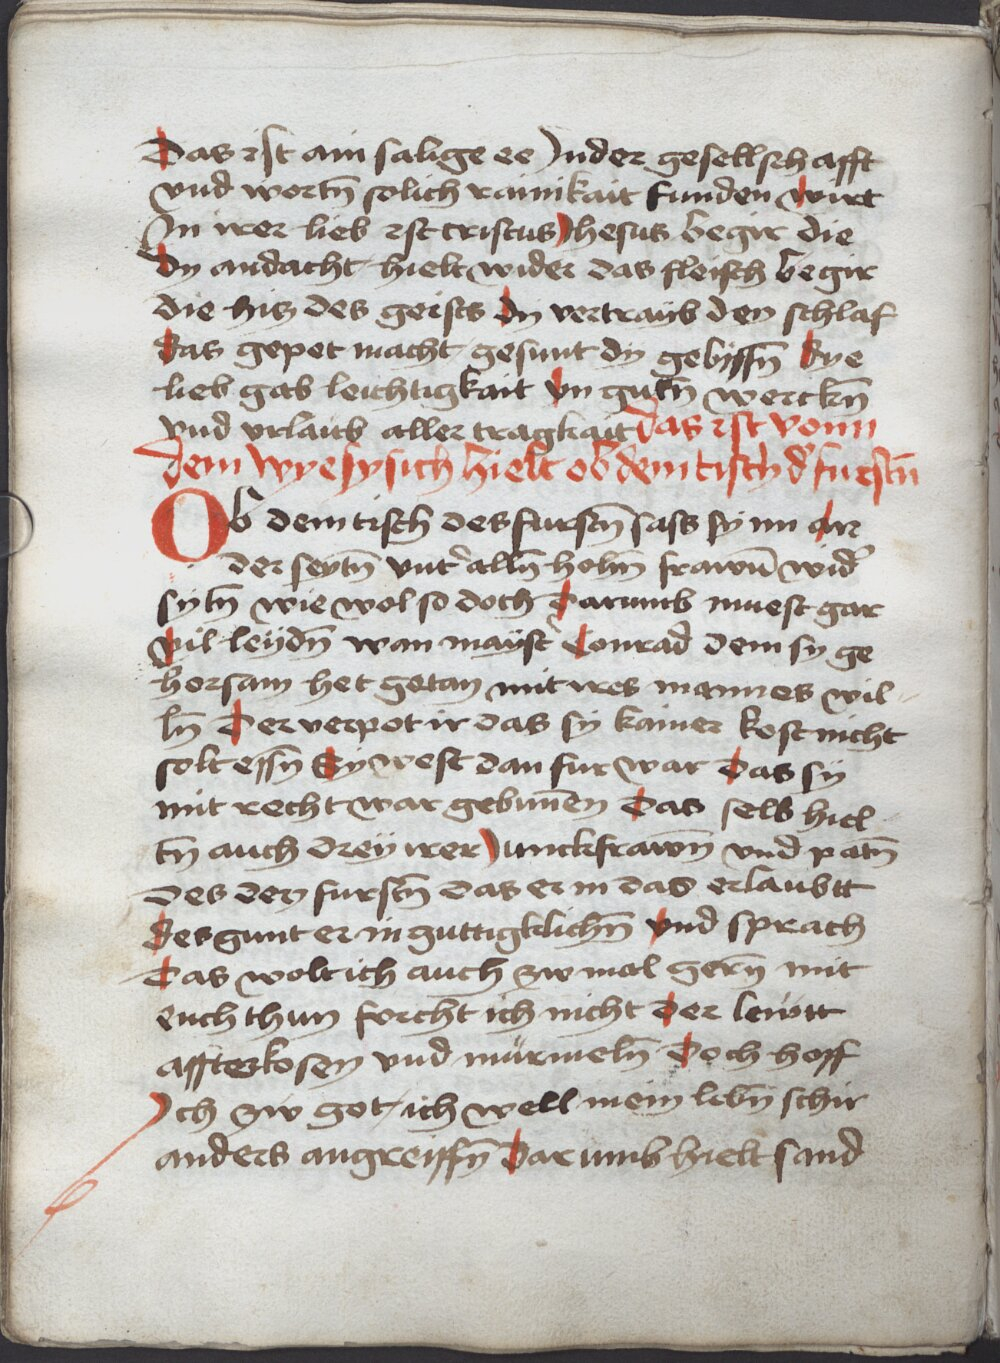 Das ist ain salige ee Inder gesellschafft
vnd wortn̄ solich rainikait funden wirt
In irer lieb ist cristus Jhesus begir die
Dy andacht hielt wider das fleisch begir
die hiz des geists Dy vertraÿb den schlaf
Das gepet macht gesunt dy gebissn̄ Dye
lieb gab leichtigkait Vn gutn̄ werckn̄
vnd vrlaub aller tragkait Das ist vonn
dem wye sy sich hielt ob dem tisch d' furstn̄
Ob dem tisch des furstn̄ sass sy im an
der seytn̄ vnt' alln̄ hohn̄ frawn̄ wid'
sytn̄ wie wol so doch Darumb muest gar
Vil leÿdn̄ wan maÿst' Conrad dem sy ge
horsam het getan mit ires mannes wil-
ln̄ Der verpot ir das sy kainer kost nicht
solt essn̄ Sy west dan fur war Das sÿ
mit recht war gebunen Das selb hiel-
tn̄ auch dreÿ irer Junckfrawn̄ vnd patn̄
des den furstn̄ das er in das erlaubtt
Des gunt er in guttigklichn̄ Vnd sprach
Das wolt ich auch zw mol gern̄ mit
euch thun forcht ich nicht Der lewtt
affterkosen vnd mürmeln̄ Doch hoff
Ich zw got ich well mein lebn̄ schir
anders angreiffn̄ Darumb hielt sand